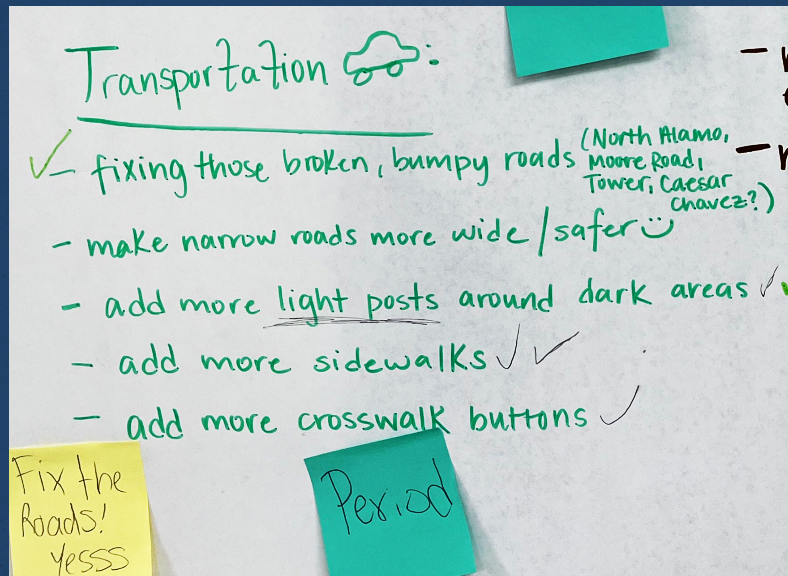 Transportation :
- fixing those broken, bumpy roads (North Alamo,
Moore Road,
Tower, Caesar
Chavez?)
- make narrow roads more wide/safer
- add more light posts around dark areas
- add more sidewalks
- add more crosswalk buttons
Fix the
Roads!
Yesss
Period